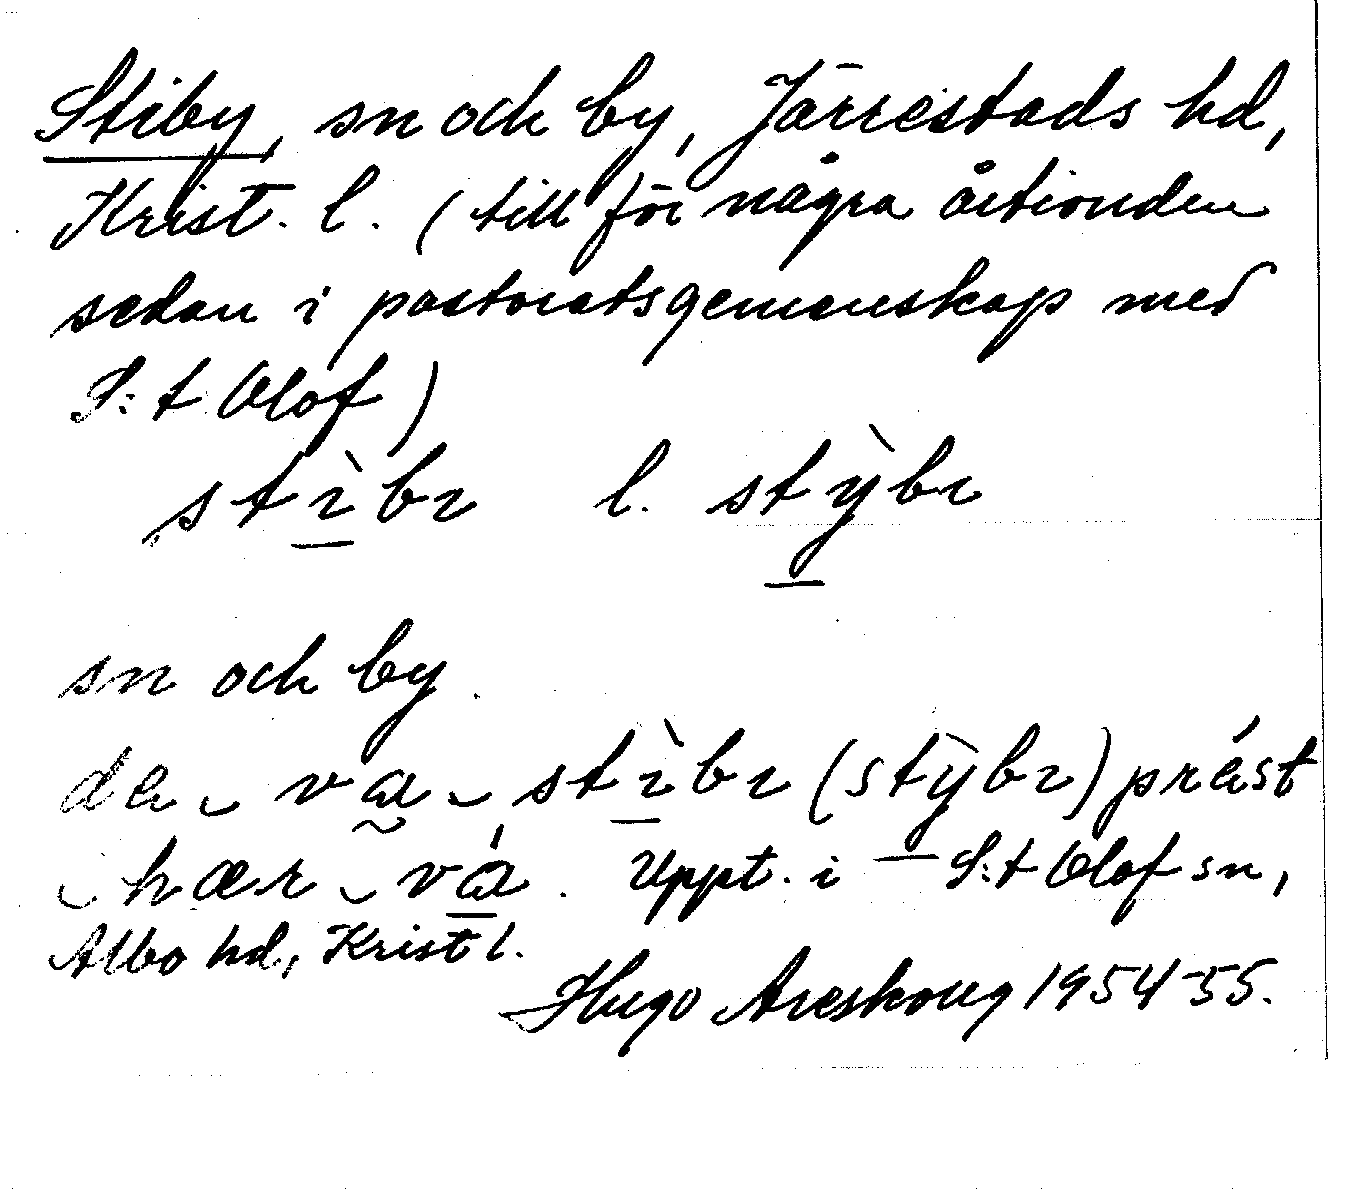 Stiby, sn och by, Järrestads hd,
Krist. l. (till för några årtionden
sedan i pastoratsgemenskap med
S:t Olof)
stìbı l. stỳbı
sn och by
de ‿ va ‿ stìbı (stỳbı) prást
‿ hær ‿ vá. Uppt. i S:t Olof sn,
Albo hd, Krist l.
Hugo Areskoug 1954-55.